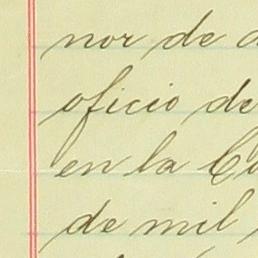 nor de
oficio de
en la
de mil